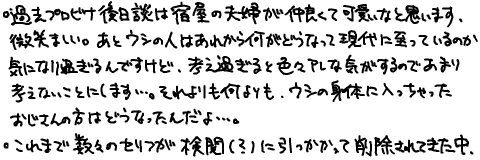 ○過去プロビデ後日談は宿屋の夫婦が仲良くて可愛いなと思います、
微笑ましい。あとウシの人はあれから何がどうなって現代に至っているのか
気になり過ぎるんですけど、考え過ぎると色々アレな気がするのであまり
考えないことにします…。それよりも何よりも、ウシの身体に入っちゃった
おじさんの方はどうなったんだよ…。
○これまで数々のセリフが検閲(?)に引っかかって削除されてきた中、